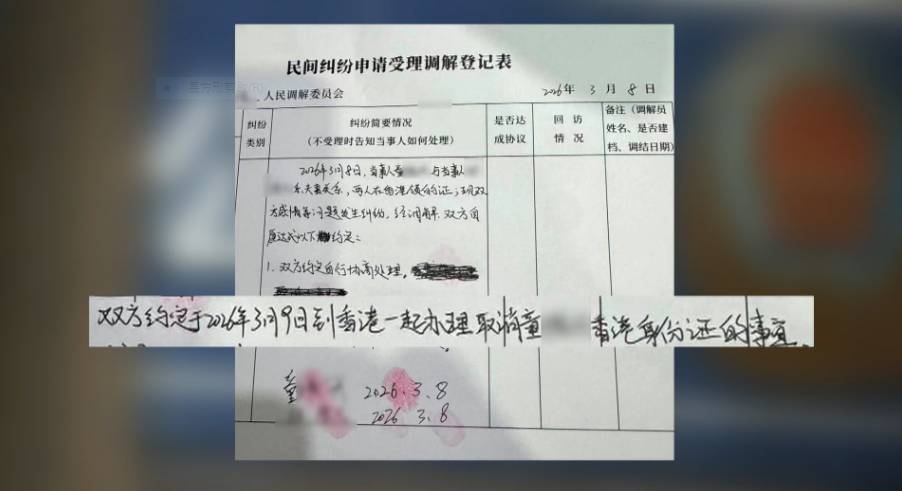 民间纠纷申请受理调解登记表
人民调解委员会 2026年 3 月 8 日
纠纷类别
纠纷简要情况
(不受理时告知当事人如何处理)
是否达成协议
回访情况
备注(调解员姓名、是否建档、调结日期)
2026年3月8日,当事人童 与当事人
系夫妻关系,两人在香港领的证,现双
方感情等问题发生纠纷,经调解双方自
愿达成以下约定:
1.双方约定自行协商处理,
双方约定于2026年3月9日到香港一起办理取消童 香港身份证的事宜。
童 2026.3.8
2026.3.8